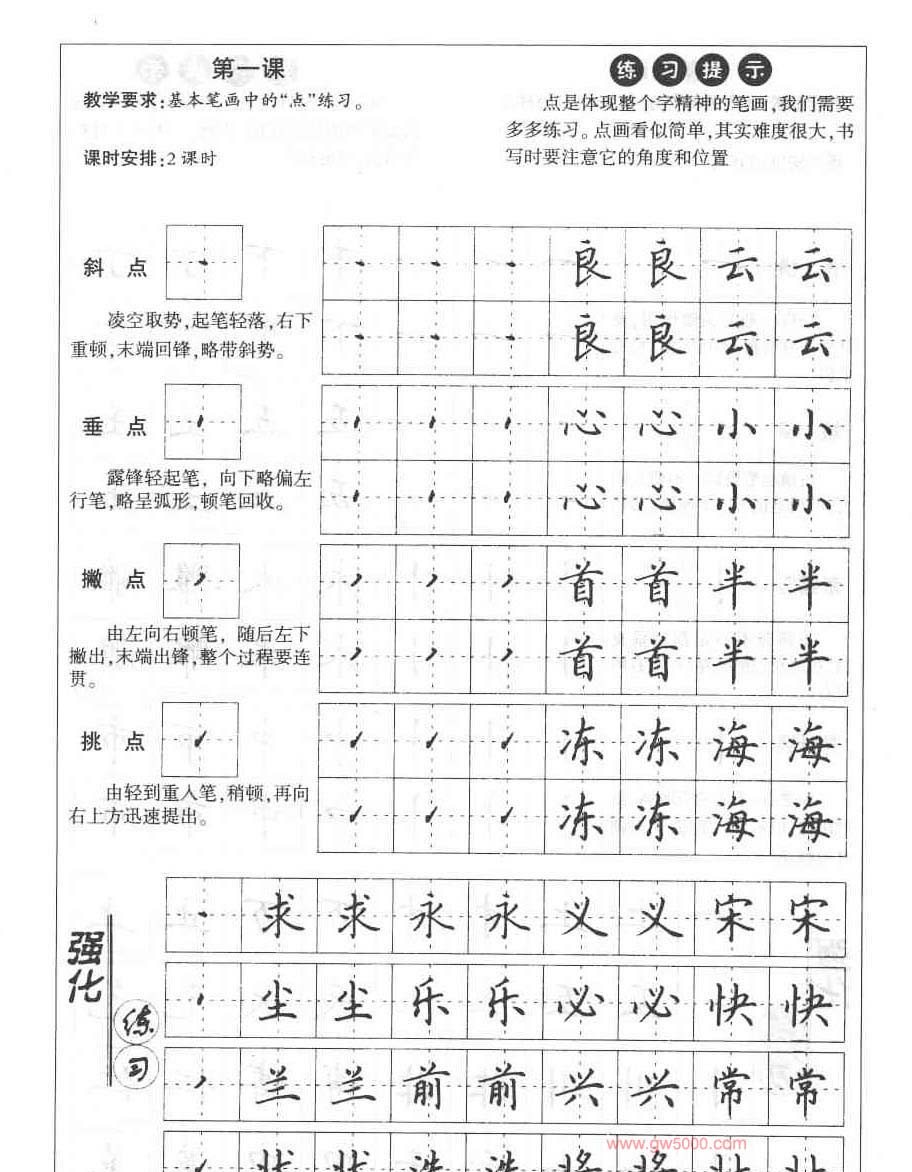 第一课
教学要求:基本笔画中的“点”练习。
课时安排:2课时
练习提示
点是体现整个字精神的笔画,我们需要
多多练习。点画看似简单,其实难度很大,书
写时要注意它的角度和位置
斜 点
良 良 云 云
凌空取势,起笔轻落,右下
重顿,末端回锋,略带斜势。
良 良 云 云
垂 点
心 心 小 小
露锋轻起笔，向下略偏左
行笔,略呈弧形,顿笔回收。
心 心 小 小
撇 点
首 首 半 半
由左向右顿笔，随后左下
撇出,末端出锋,整个过程要连
贯。
首 首 半 半
挑 点
冻 冻 海 海
由轻到重人笔,稍顿,再向
右上方迅速提出。
冻 冻 海 海
强化
练习
求 求 永 永 义 义 宋 宋
尘 尘 乐 乐 必 必 快 快
兰 兰 前 前 兴 兴 常 常
www.gw5000.com